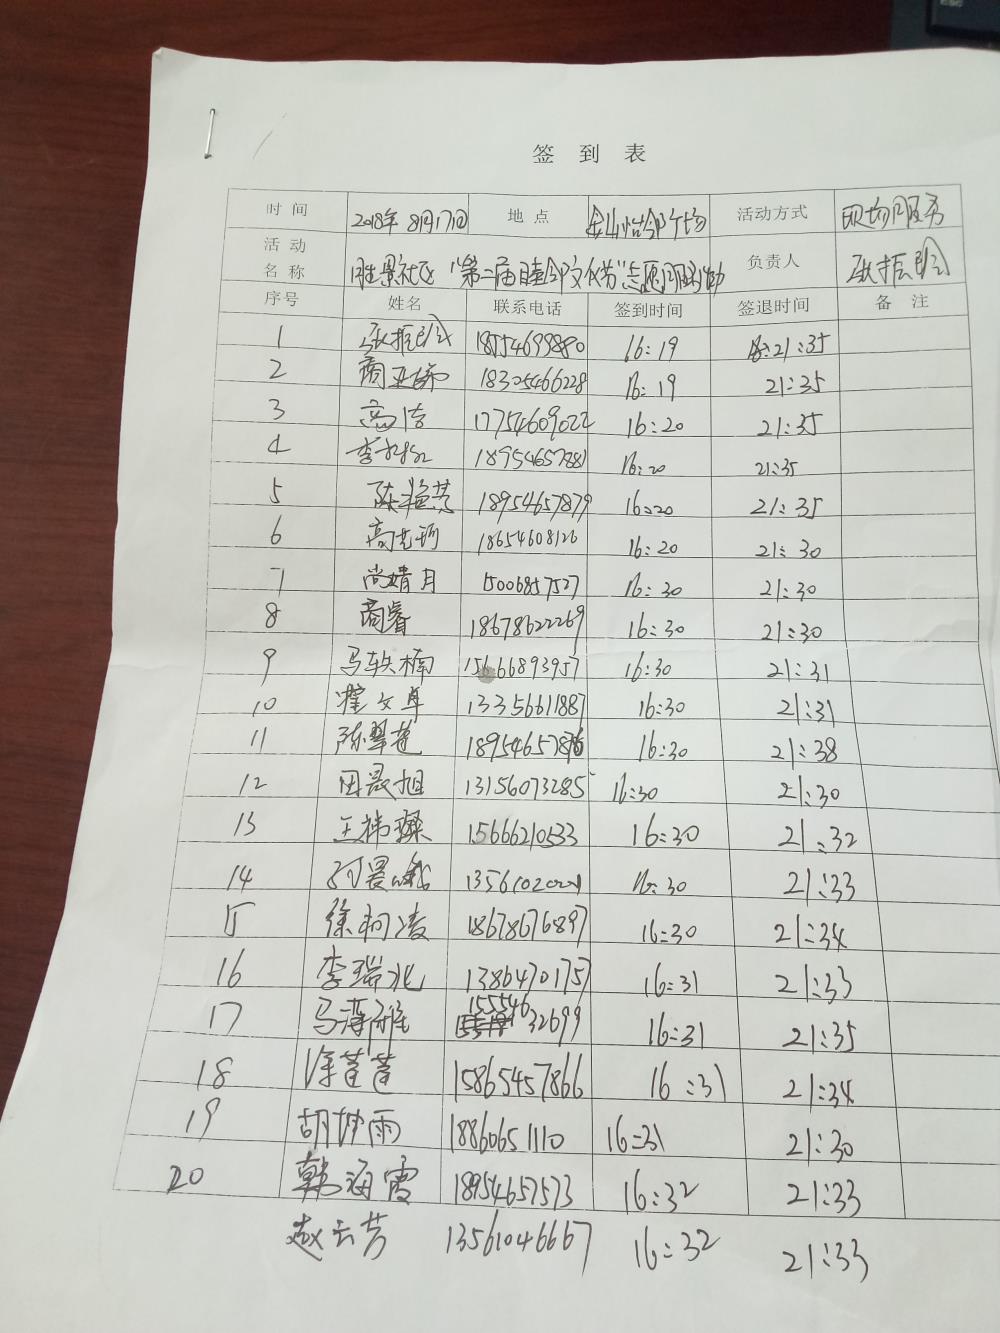 签 到 表
时 间 2018年8月17日 地 点 金山怡邻广场 活动方式 现场服务
活 动 名 称 胜景社区“第二届睦邻文化节”志愿服务活动 负责人
序号 姓名 联系电话 签到时间 签退时间 备 注
1 18554699880 16:19 21:35
2 18305466228 16:19 21:35
3 高洁 17754609022 16:20 21:35
4 16:20 21:35
5 陈艳芳 18954657879 16:20 21:35
6 18654608126 16:20 21:30
7 尚婧月 15006857527 16:30 21:30
8 商睿 18678622269 16:30 21:30
9 马轶楠 15666893957 16:30 21:31
10 霍文卓 13356611887 16:30 21:31
11 陈翠莲 16:30 21:38
12 田晟旭 13156073285 16:30 21:30
13 王祎璨 15666210533 16:30 21:32
14 16:30 21:33
15 徐柯凌 18678676897 16:30 21:34
16 李瑞兆 13864701757 16:31 21:33
17 马 雅 15554632699 16:31 21:35
18 徐莲莲 15865457866 16:31 21:34
19 胡坤雨 18860651110 16:31 21:30
20 韩海霞 18954657573 16:32 21:33
赵云芳 13561046667 16:32 21:33